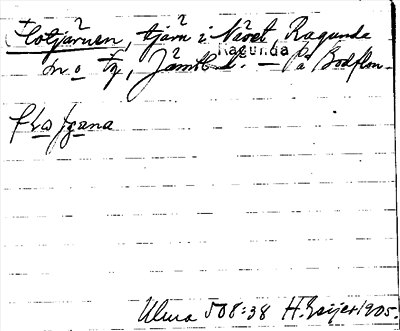 Flotjärnen, tjärn i Nävet, Ragunda
Ragunda
sn. o tg, Jämtl. — På Bodflon
Ulma 508:38 H. Geijer 1905.